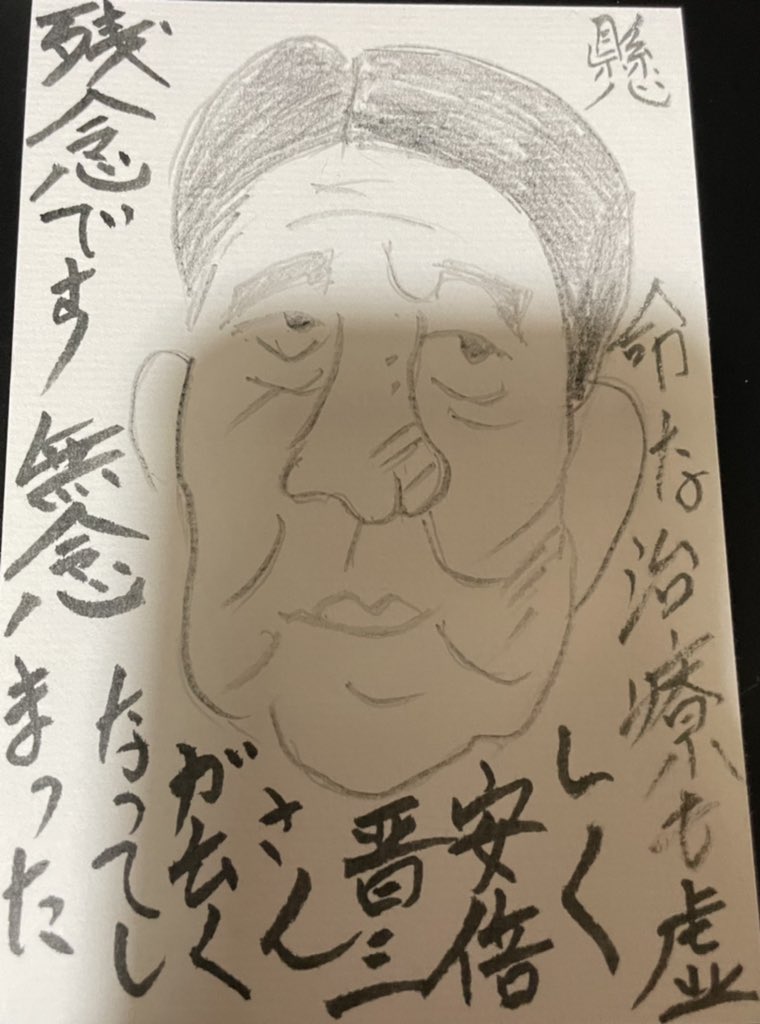 懸
命な治療も虚
しく
安倍
晋三
さん
が亡く
なってし
まった
残念です無念